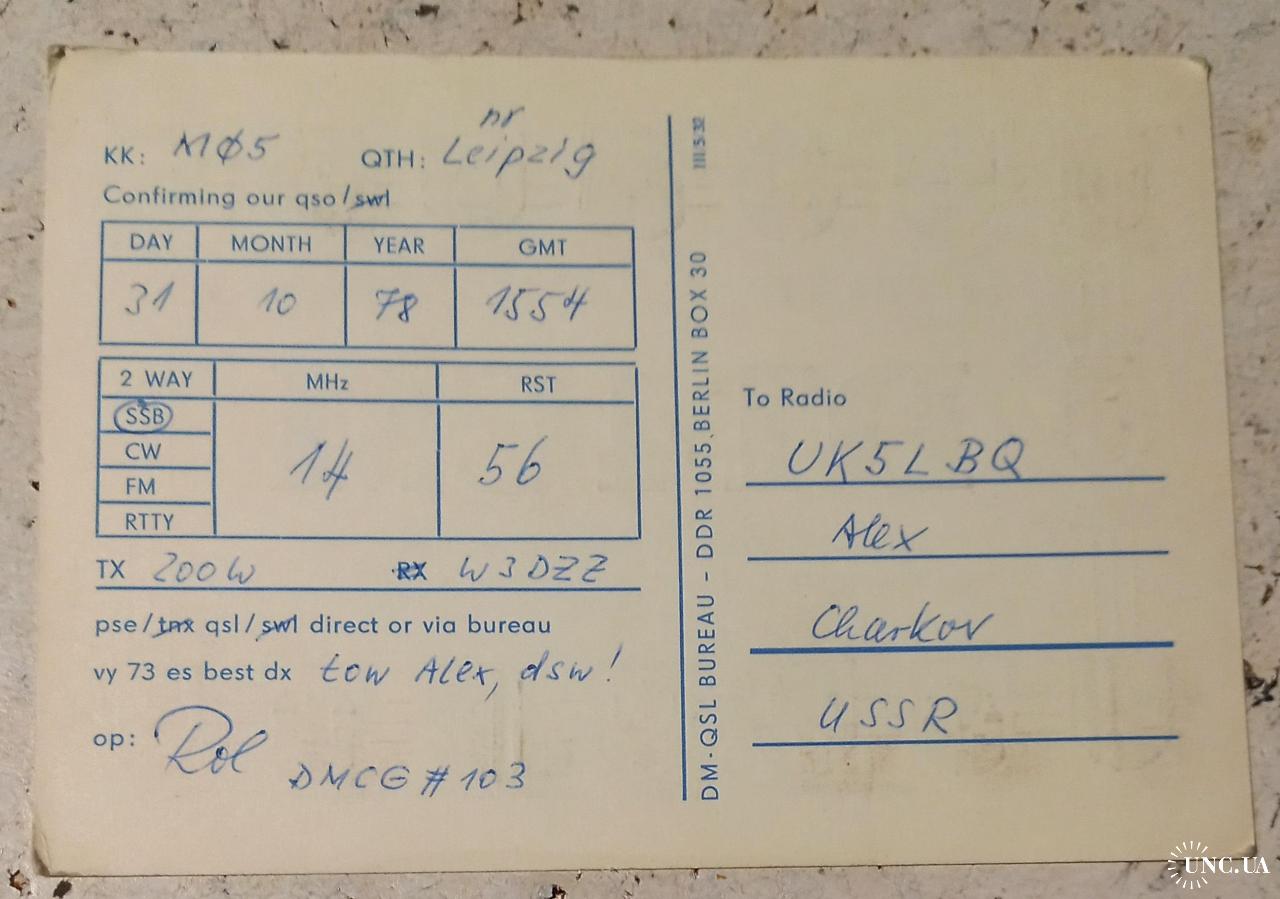 KK: MØ5 QTH: nr Leipzig
Confirming our qso/swl
DAY MONTH YEAR GMT
31 10 78 1554
2 WAY MHz RST
SSB
CW
FM
RTTY
14 56
TX 200W RX W3DZZ
pse/tnx qsl/swl direct or via bureau
vy 73 es best dx tow Alex, dsw!
op: Rol
DMCG #103
III 5 32
DM-QSL BUREAU – DDR 1055, BERLIN BOX 30
To Radio
UK5LBQ
Alex
Charkov
USSR
UNC.UA